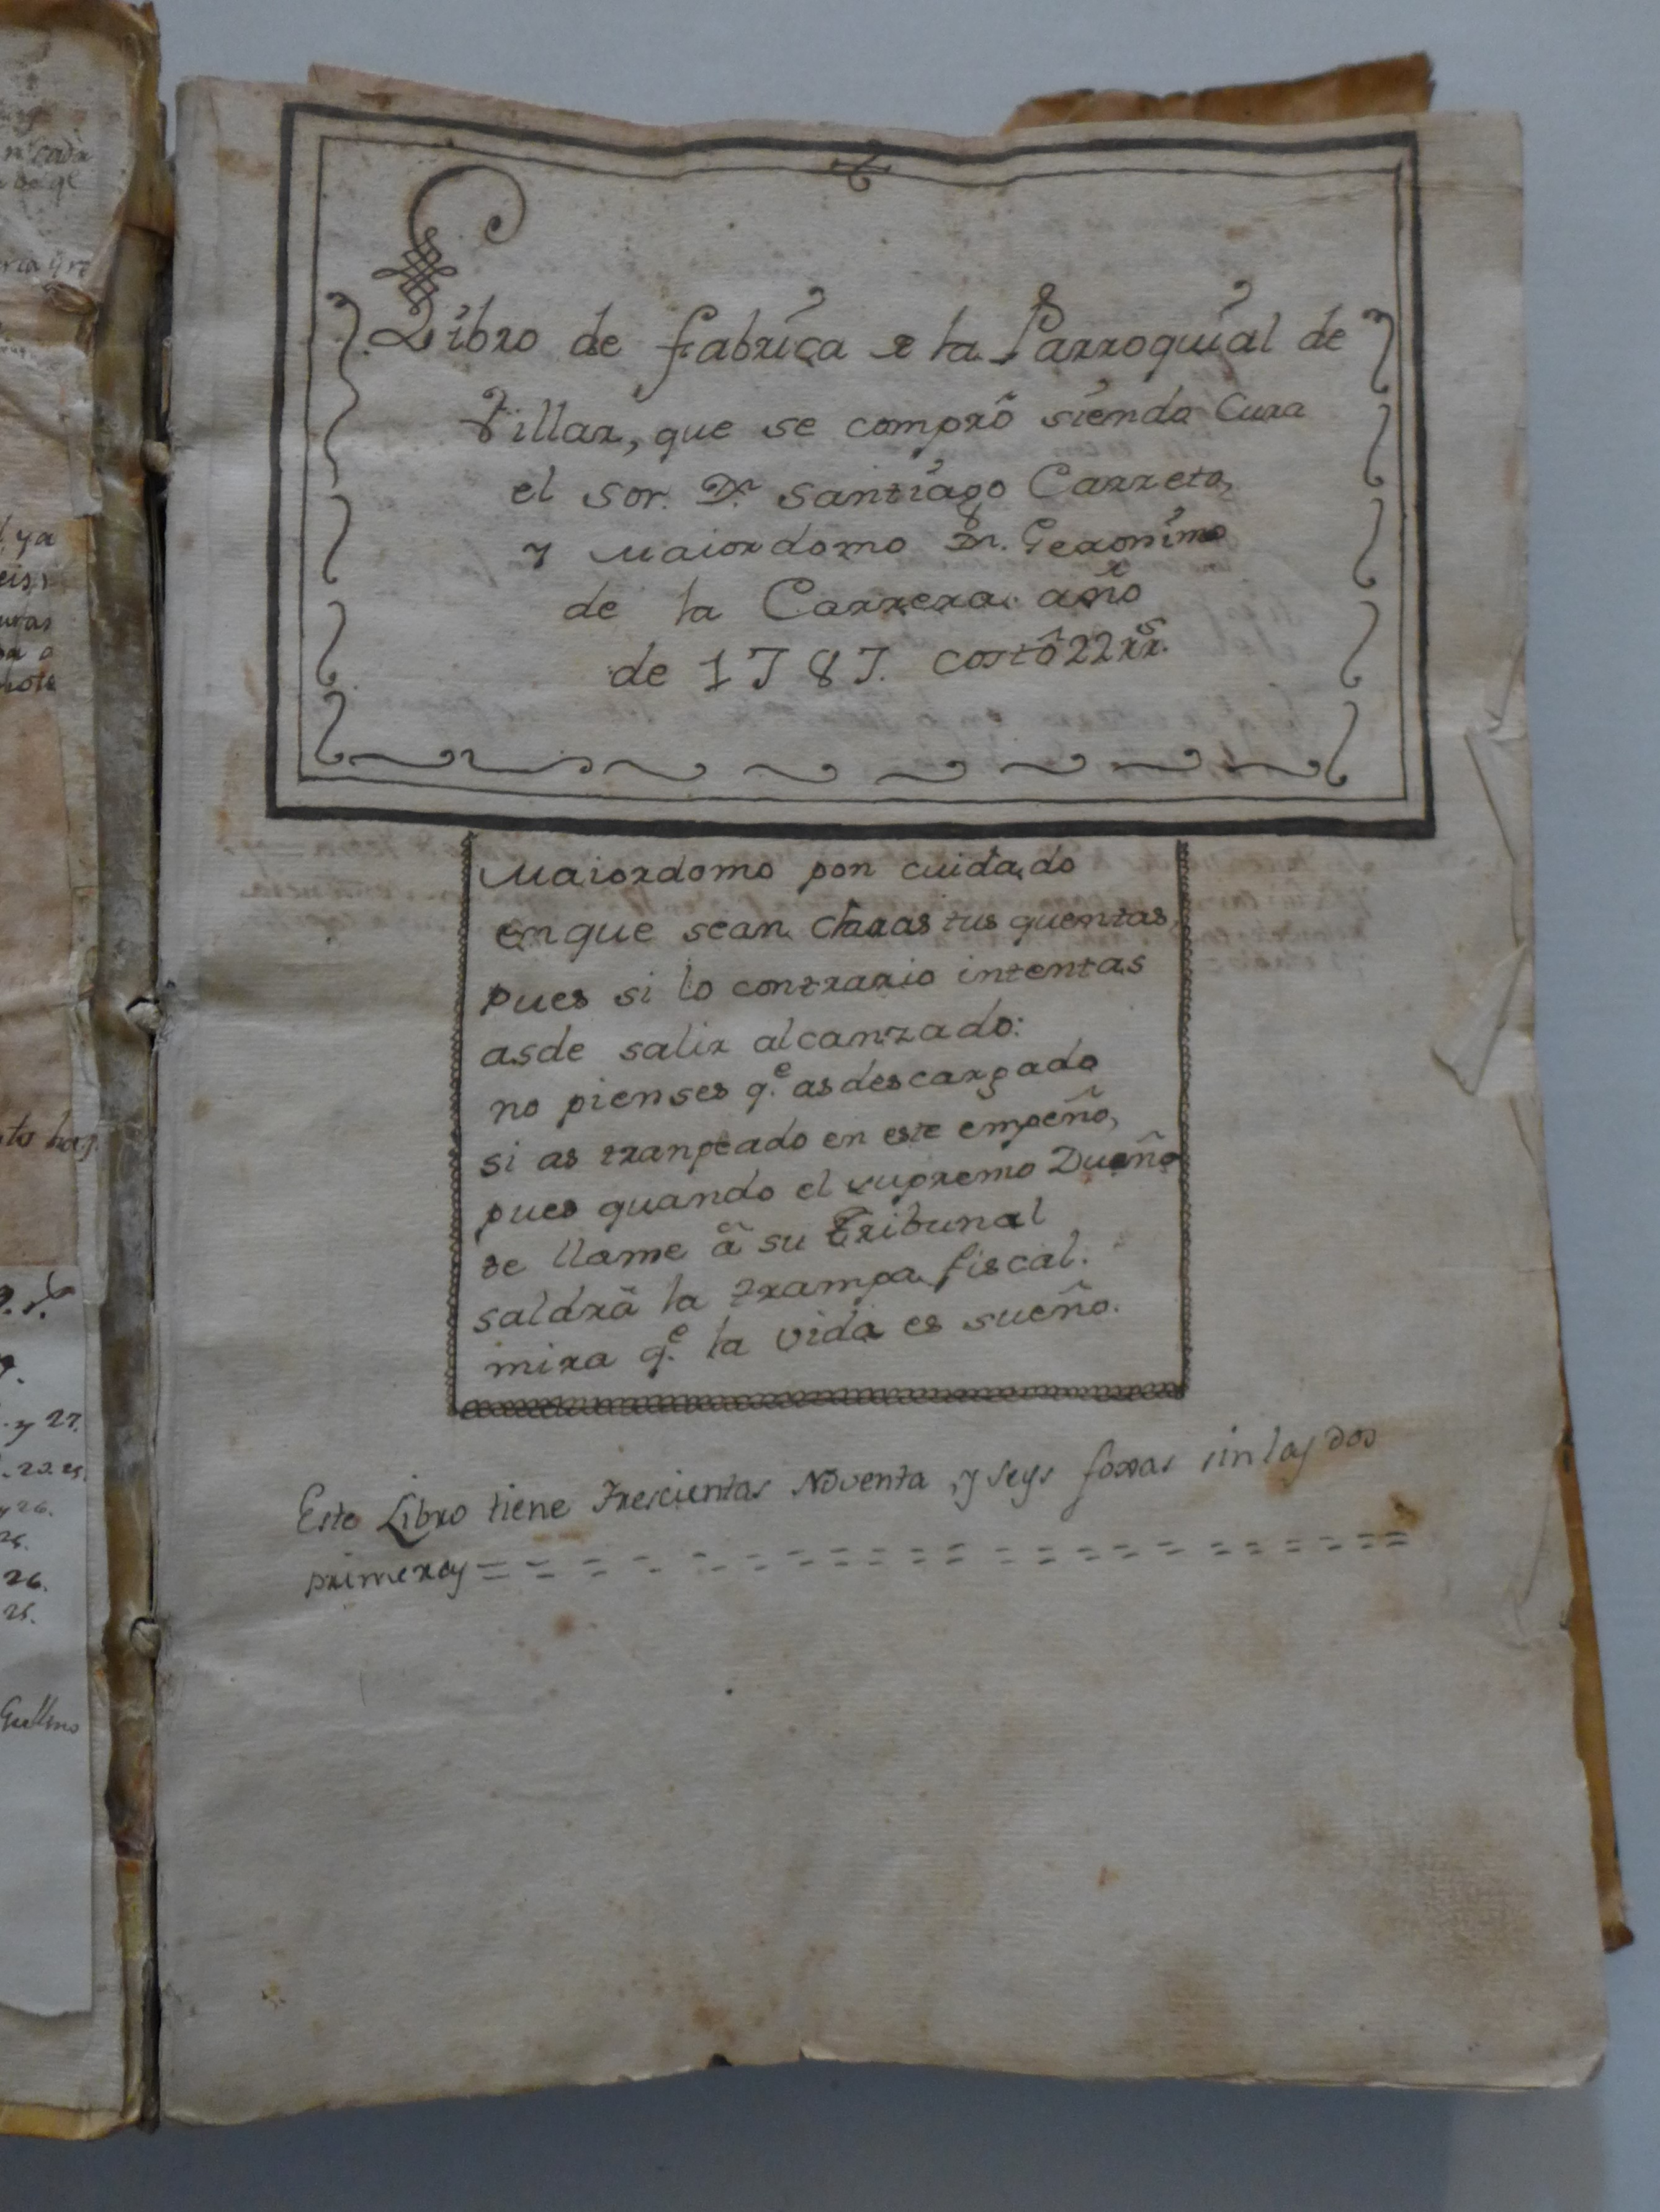 Libro de fabrica de la Parroquial de
Villar, que se comprô siendo Cura
el Sor. Dn. Santiago Carreto,
y Maiordomo Dn. Geronimo
de la Carrera: año
de 1787. costô 22 rrs.
Maiordomo pon cuidado
en que sean claras tus quentas,
pues si lo contrario intentas
asde salir alcanzado:
no pienses q.e as descargado
si as tranpeado en este empeño,
pues quando el supremo Dueño
te llame â su Tribunal
saldrâ la trampa fiscal.
mira q.e la vida es sueño.
Este Libro tiene Trescientas Noventa, y seys foxas sin las dos
primeras = = = = = = = = = = = = = = = = = =
n cada
ria y
l, ya
eis,
uras
nota
to ha
. y 27.
. 23. 25.
y 26.
25.
26.
25.